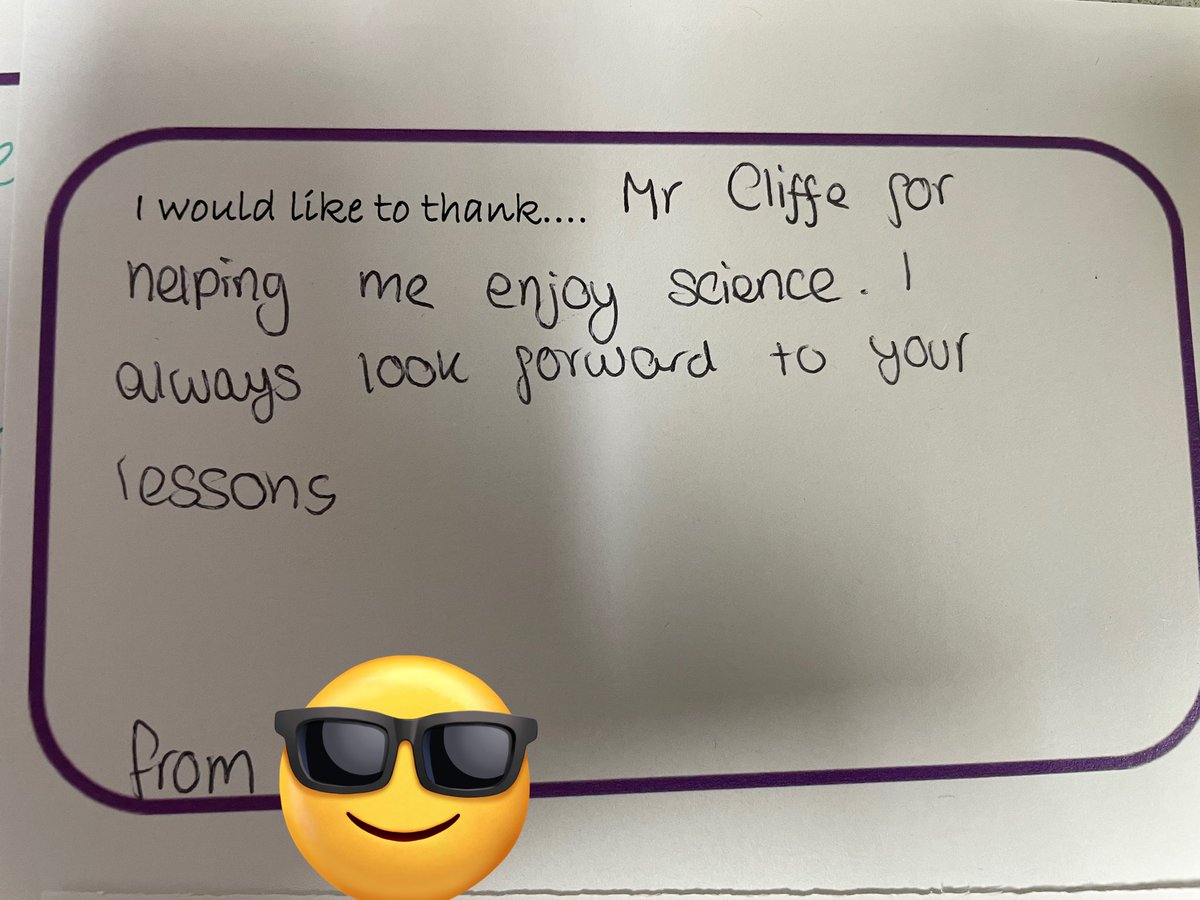 I would like to thank.... Mr Cliffe for
helping me enjoy science. I
always look forward to your
lessons
from